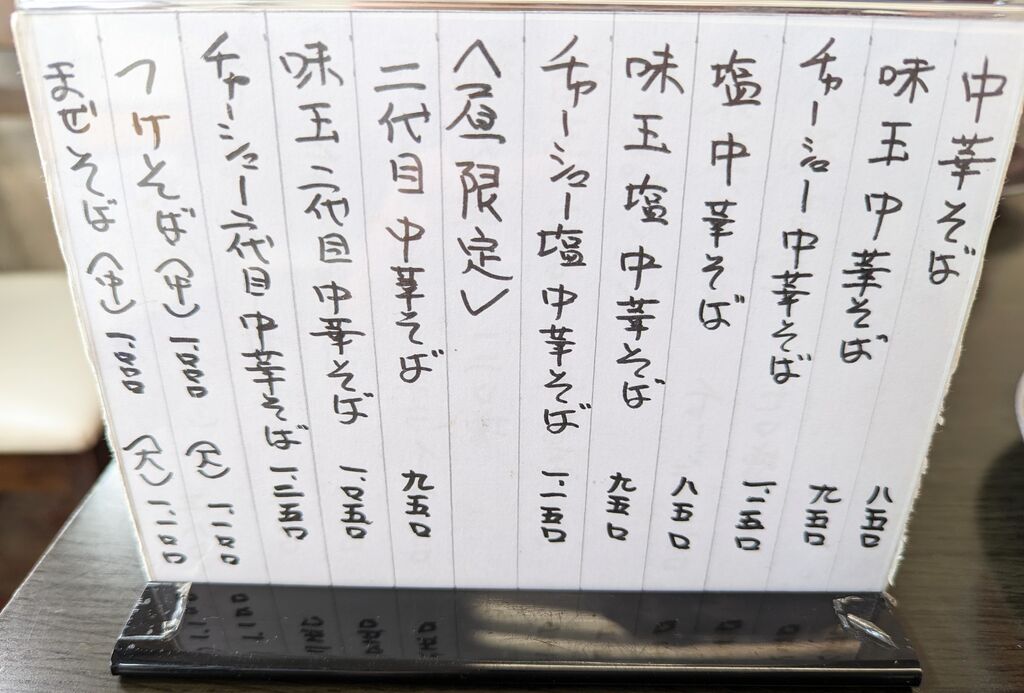 中華そば 八五〇
味玉中華そば 九五〇
チャーシュー中華そば 一、一五〇
塩中華そば 八五〇
味玉塩中華そば 九五〇
チャーシュー塩中華そば 一、一五〇
〈昼限定〉
二代目中華そば 九五〇
味玉二代目中華そば 一、〇五〇
チャーシュー二代目中華そば 一、二五〇
つけそば(中) 一、〇〇〇 (大) 一、一〇〇
まぜそば(中) 一、〇〇〇 (大) 一、一〇〇